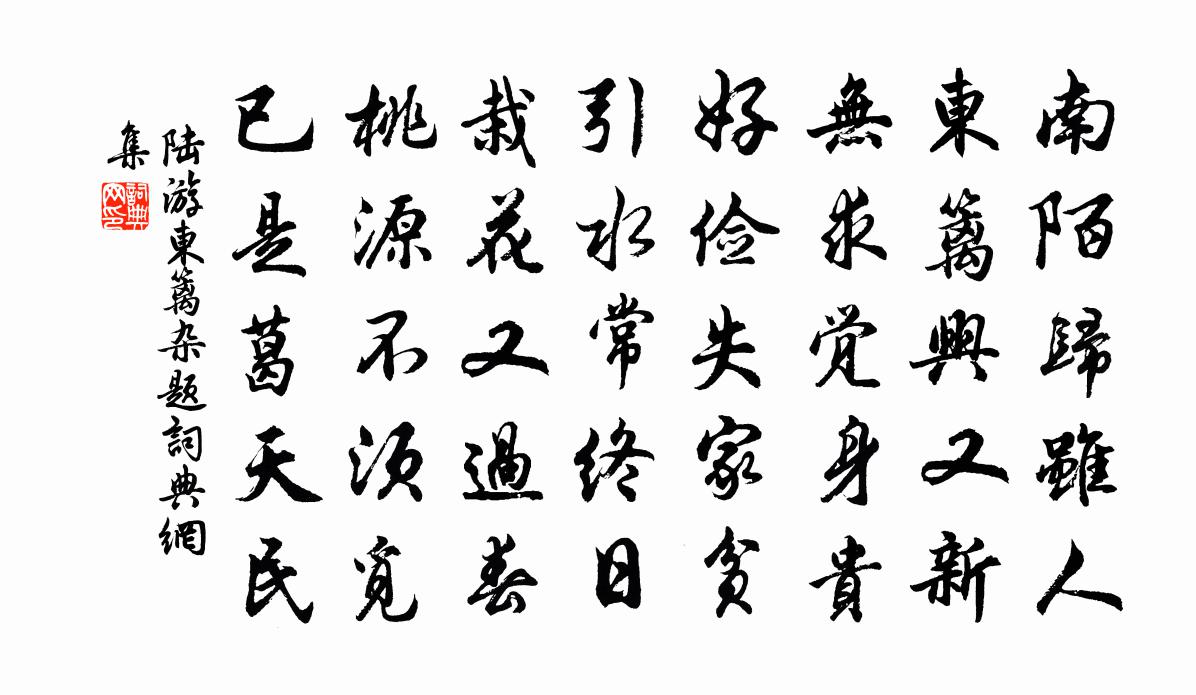 南陌歸雖人
東籬興又新
無求覚身貴
好儉失家貧
引水常終日
栽花又過春
桃源不須覓
已是葛天民
陸游東籬杂題詞典網
集
詞典
网印